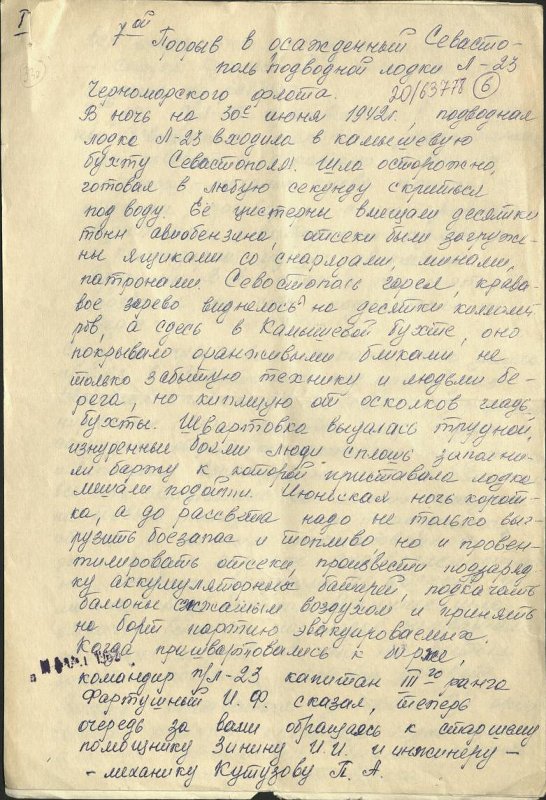 I
7ой Прорыв в осажденный Севасто-
поль подводной лодки Л-23
Черноморского флота. 20/63778 6
В ночь на 30е июня 1942г., подводная
лодка Л-23 входила в камышевую
бухту Севастополя. Шла осторожно,
готовая в любую секунду скриться
под воду. Её цистерни вмещали десятки
тонн авиобензина, отсеки были загруже-
ны ящиками со снарядами, минами,
патронами. Севостополь горел, крова-
вое зарево виднелось на десятки километ
ров, а здесь в Камышевой бухте, оно
покрывало оранживыми бликами не
только забытую техники и людьми бе-
рега, но кипящую от осколков гладь
бухты. Швартовка выдалась трудной,
изнуренные боями люди сплошь заполни-
ли баржу к которой приставала лодка
мешали подойти. Июньская ночь корот-
ка, а до рассвята надо не только выг-
рузить боезапас и топливо, но и провен-
тилировать отсеки, произвести подзаряд
ку аккумуляторных батарей, подкачать
баллоны сжатым воздухом и принять
на борт партию эвакуироваемых.
Когда пришвартовались к барже,
командир п/Л-23 капитан III го ранга
Фартушный И.Ф. сказал, теперь
очередь за вами обращаясь к старшему
помощнику Зинину И.И. и инженеру-
- механику Кутузову П.А.